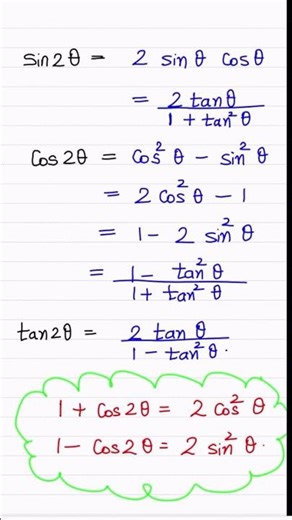 sin2θ = 2 sinθ cosθ
= 2 tanθ / 1 + tan²θ
cos2θ = cos²θ − sin²θ
= 2cos²θ − 1
= 1 − 2 sin²θ
= 1 − tan²θ / 1 + tan²θ
tan2θ = 2 tanθ / 1 − tan²θ.
1 + cos2θ = 2cos²θ
1 − cos2θ = 2 sin²θ.